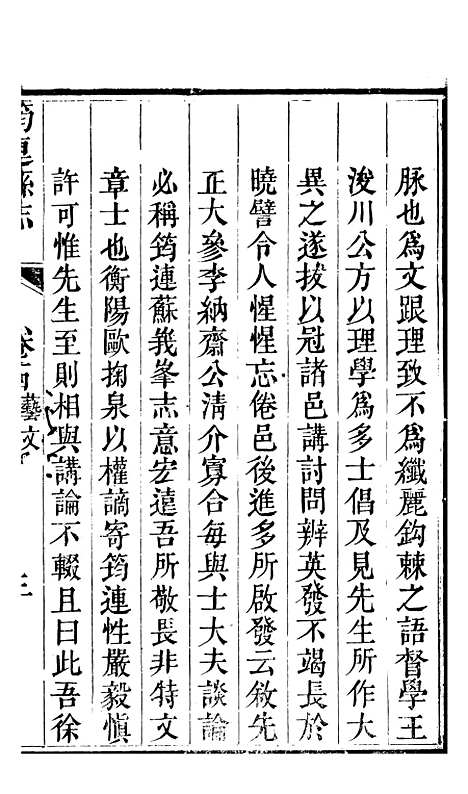 脉也爲文跟理致不爲纖麗鈎棘之語督學王
浚川公方以理學爲多士倡及見先生所作大
異之遂拔以冠諸邑講討問辨英發不竭長於
曉譬令人惺惺忘倦邑後進多所啟發云敘先
正大參李納齋公清介寡合每與士大夫談論
必稱筠連蘇我峯志意宏遠吾所敬長非特文
章士也衡陽歐掬泉以權謫寄筠連性嚴毅慎
許可惟先生至則相與講論不輟且曰此吾徐
筠連縣志
卷十四藝文